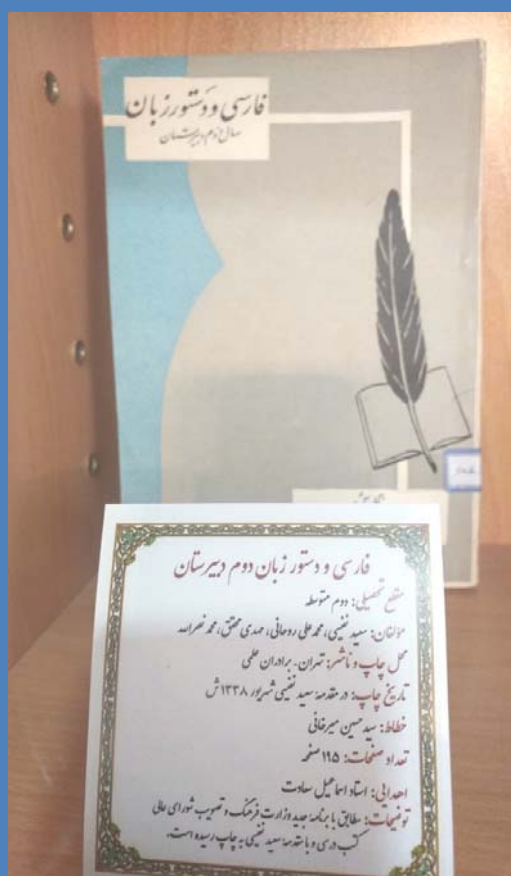 فارسی و دستور زبان
سال دوم دبیرستان
فارسی و دستور زبان دوم دبیرستان
مقطع تحصیلی: دوم متوسطه
مؤلفان: سعید نفیسی، محمد علی روحانی، مهدی محقق، محمد نصرالله
محل چاپ و ناشر: تهران - برادران علمی
تاریخ چاپ: در مقدمه سعید نفیسی شهریور ۱۳۳۸ ش
خطاط: سید حسین میرخانی
تعداد صفحات: ۱۹۵ صفحه
اهدایی: استاد اسماعیل سعادت
توضیحات: مطابق با برنامه جدید وزارت فرهنگ و تصویب شورای عالی
کتب درسی و با مقدمه سعید نفیسی به چاپ رسیده است.